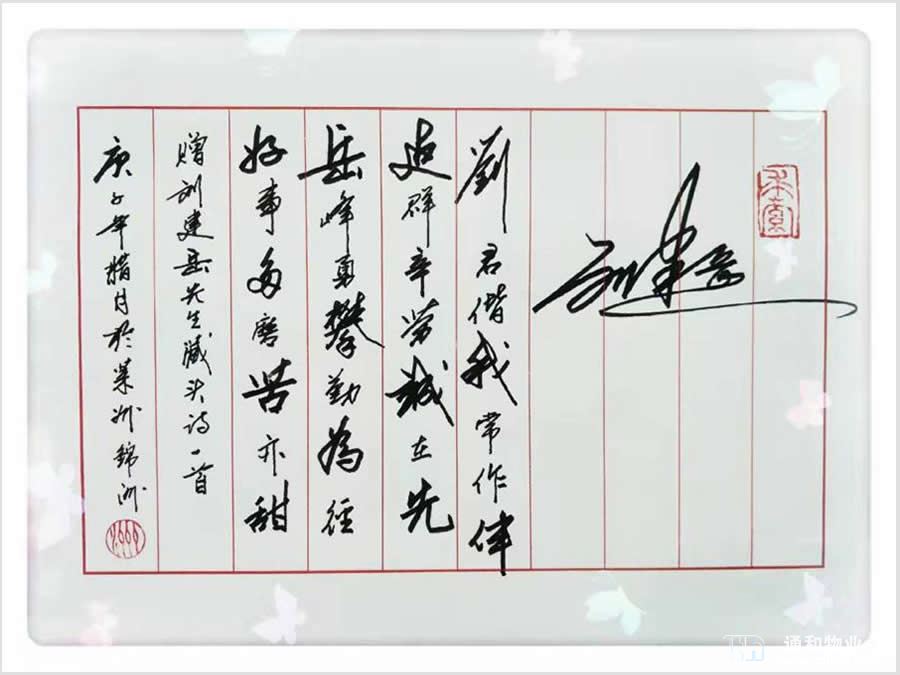 刘建岳
劉君偕我常作伴
建群辛劳在先
岳峰勇攀勤為径
好事多磨苦亦甜
赠刘建岳先生藏头诗一首
庚子年腊月於莱州錦洲
通和物业